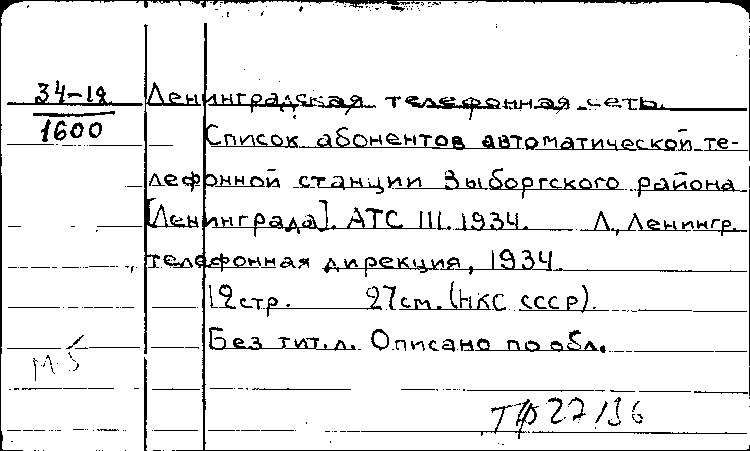 34-12
1600
Ленинградская телефонная сеть.
Список абонентов автоматической те-
лефонной станции Выборгского района
[Ленинграда]. АТС III. 1934. Л., Ленингр.
телефонная дирекция, 1934.
12стр. 27см. (НКС СССР).
Без тит.л. Описано по обл.
М-5
ТФ 27/36